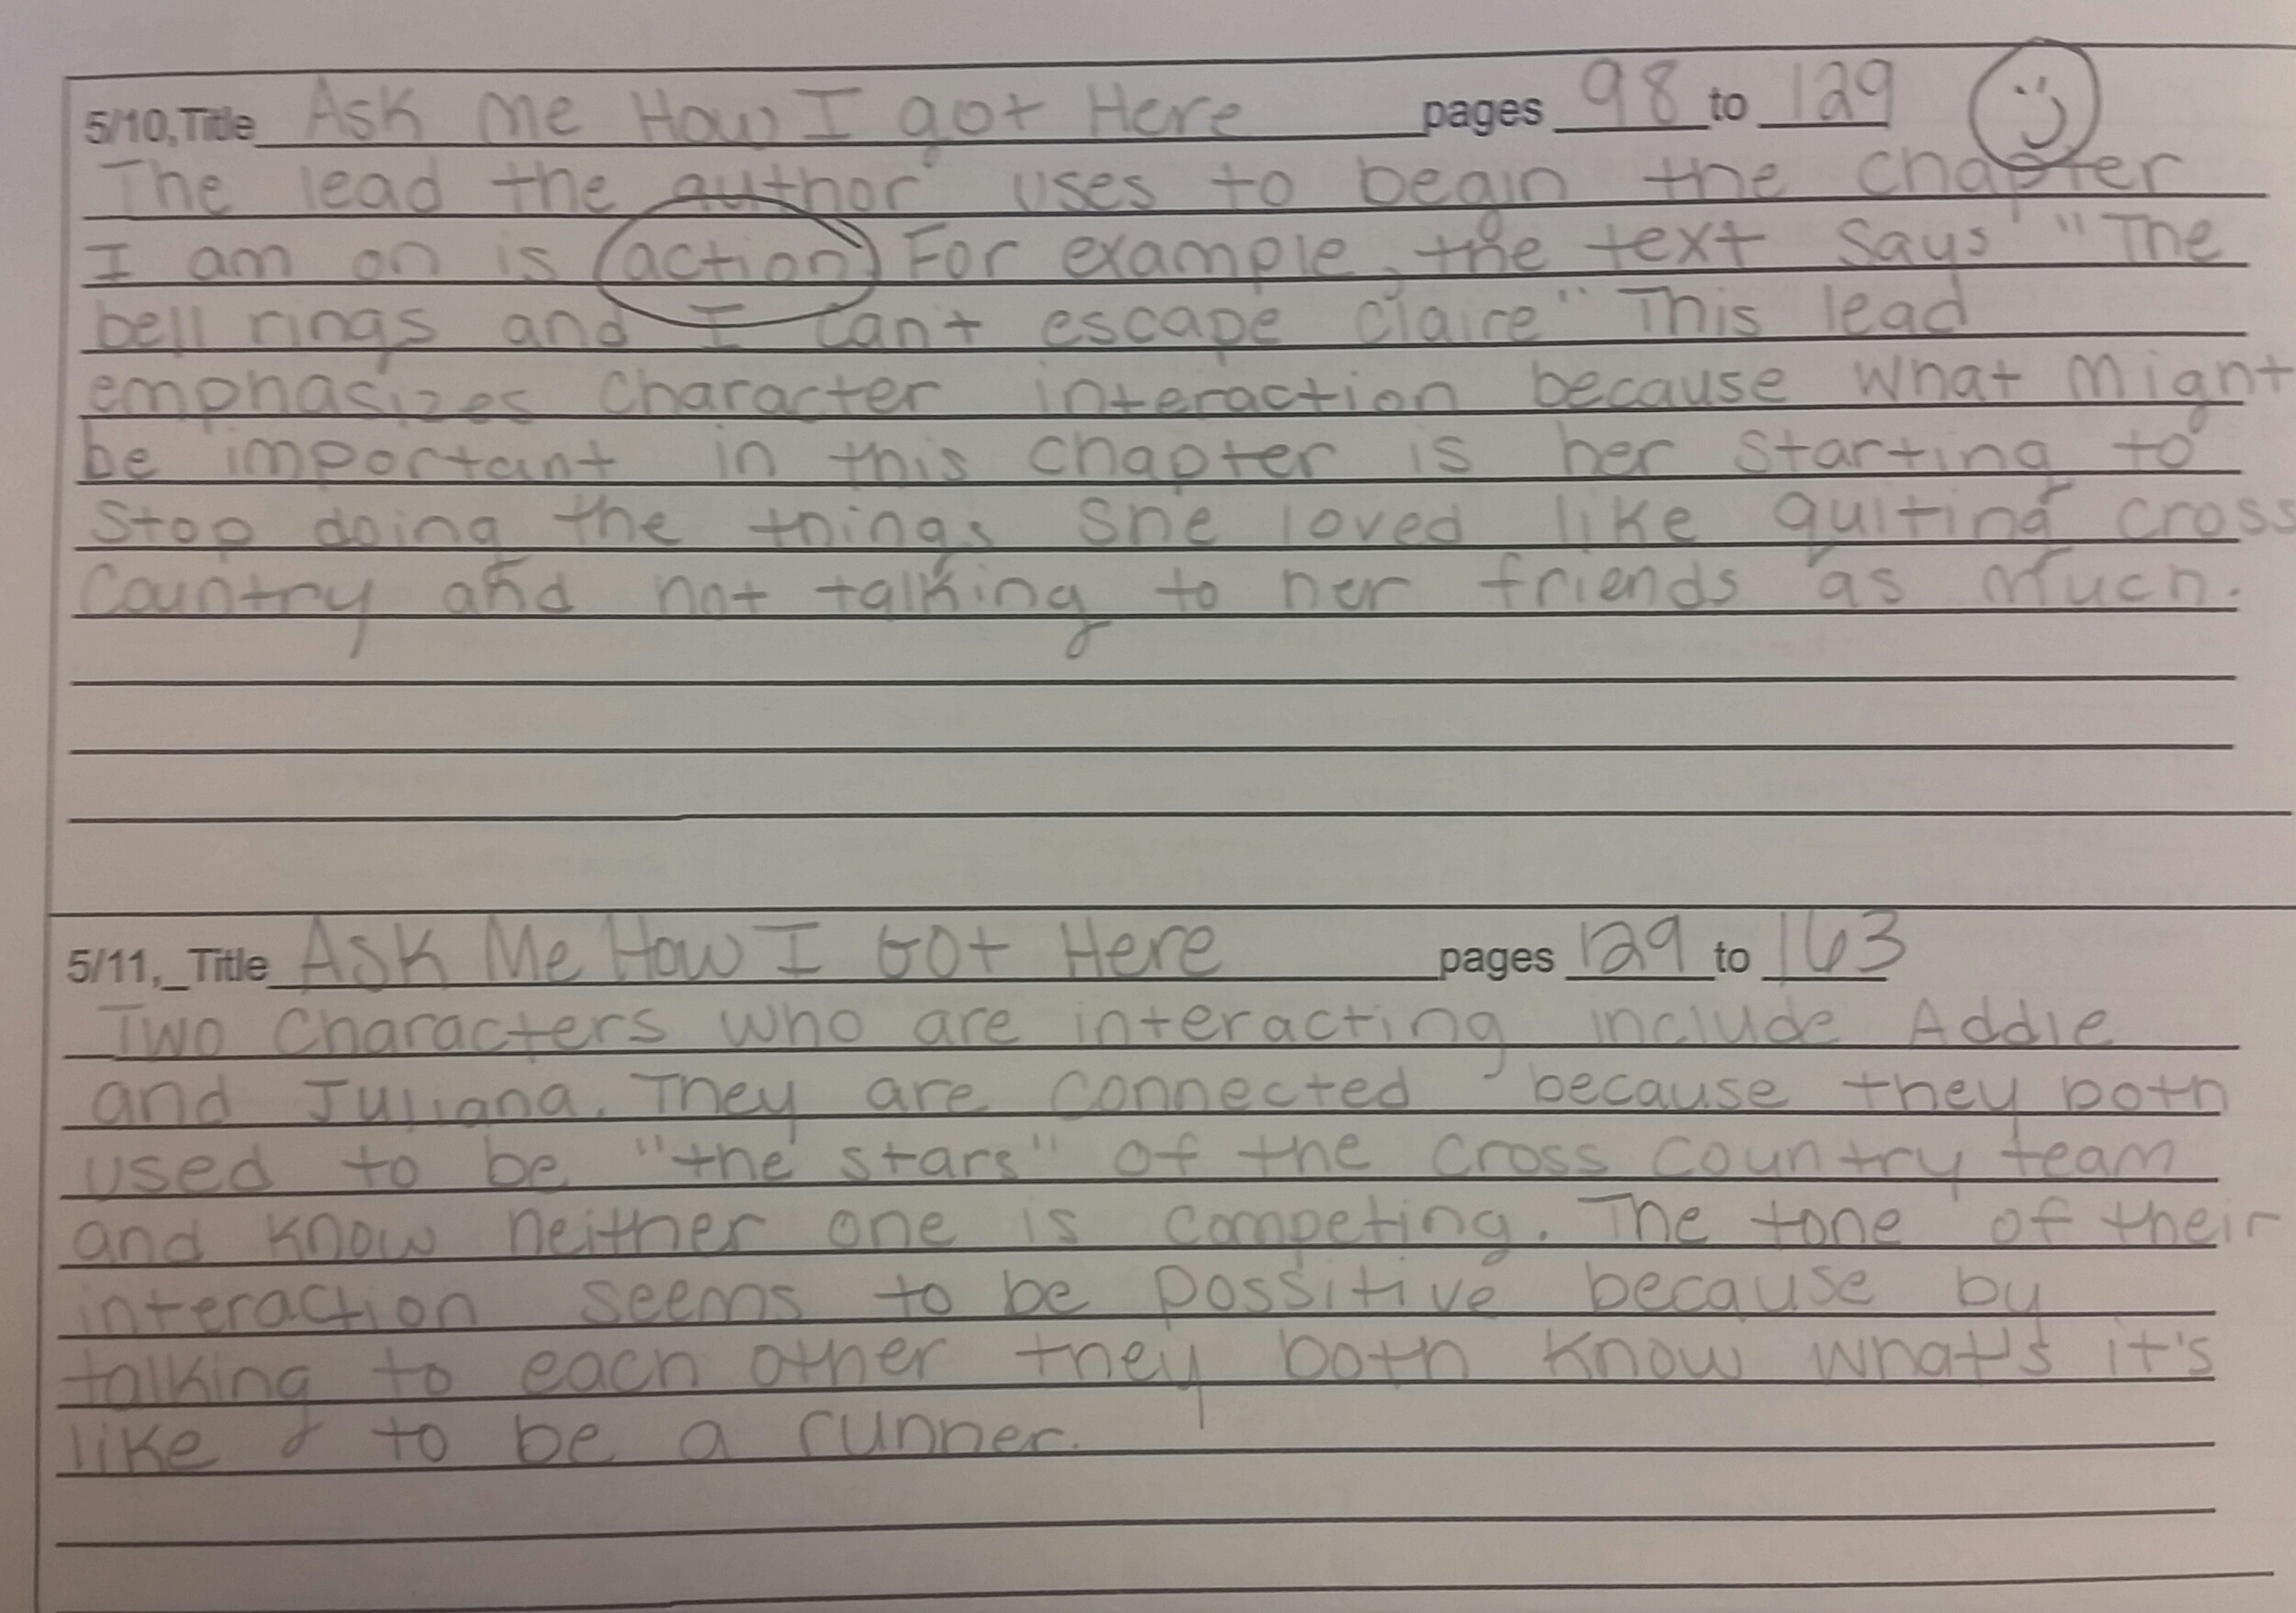 5/10, Title Ask Me How I got Here pages 98 to 129
The lead the author uses to begin the chapter
I am on is action For example, the text says "The
bell rings and I can't escape claire" This lead
emphasizes character interaction because what might
be important in this chapter is her starting to
stop doing the things she loved like quiting cross
country and not talking to her friends as much.
5/11, _Title Ask Me How I Got Here pages 129 to 163
Two characters who are interacting include Addie
and Juliana. They are connected because they both
used to be "the stars" of the cross country team
and know neither one is competing. The tone of their
interaction seems to be possitive because by
talking to each other they both know what's it's
like to be a runner.